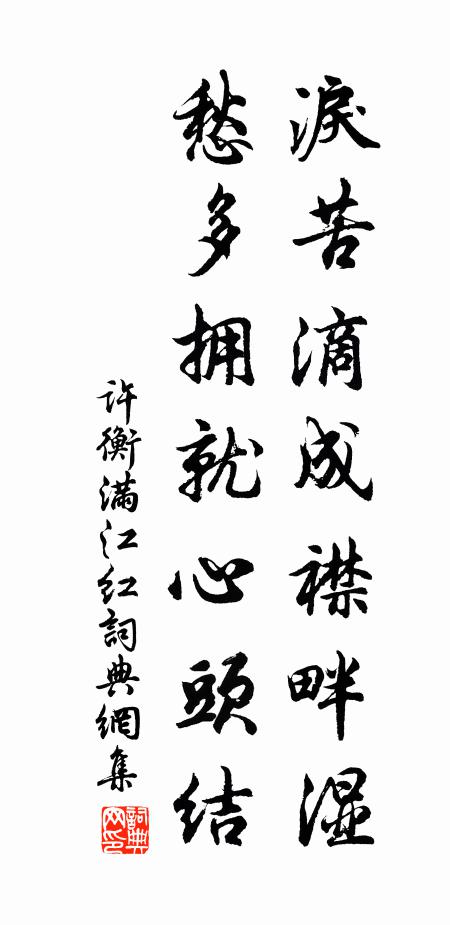 淚苦滴成襟畔湿
愁多拥就心頭结
许衡满江红詞典網集
詞典网印